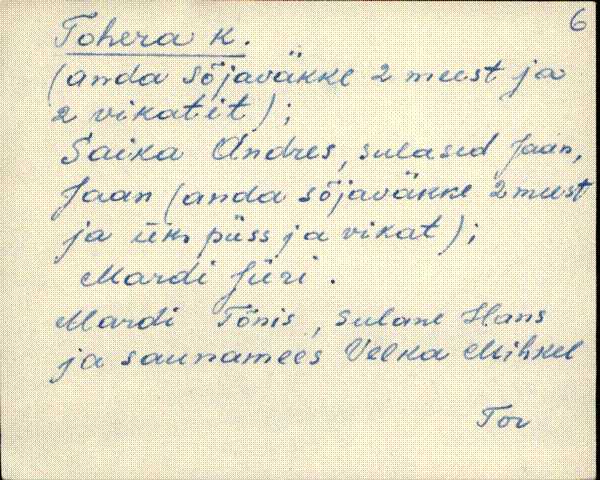 6
Tohera k.
(anda sõjaväkke 2 meest ja
2 vikatit);
Saika Andres, sulased Jaan,
Jaan (anda sõjaväkke 2 meest
ja üks püss ja vikat);
Mardi Jüri.
Mardi Tõnis, sulane Hans
ja saunamees Velka Mihkel
Tor